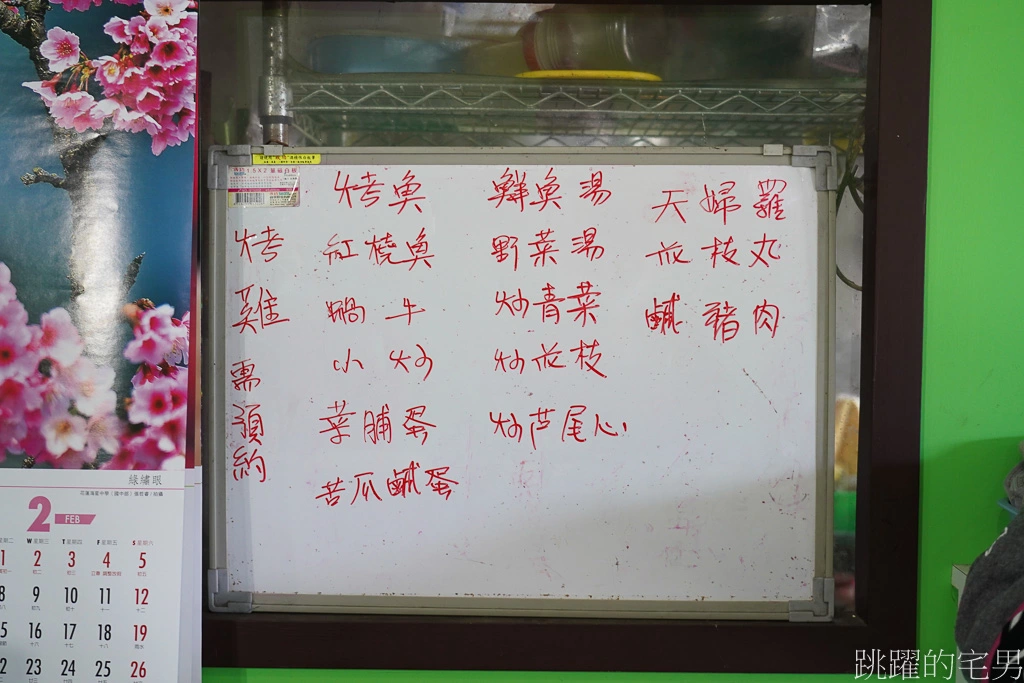 烤雞需預約
烤魚
紅燒魚
蝸牛
小炒
菜脯蛋
苦瓜鹹蛋
鮮魚湯
野菜湯
炒青菜
炒花枝
炒芦尾心
天婦羅
花枝丸
鹹豬肉
綠繡眼
2 FEB
W 星期三 T 星期四 F 星期五 S 星期六
1 2 3 4 5
8 9 10 11 12
15 16 17 18 19
22 23 24 25 26
跳躍的宅男